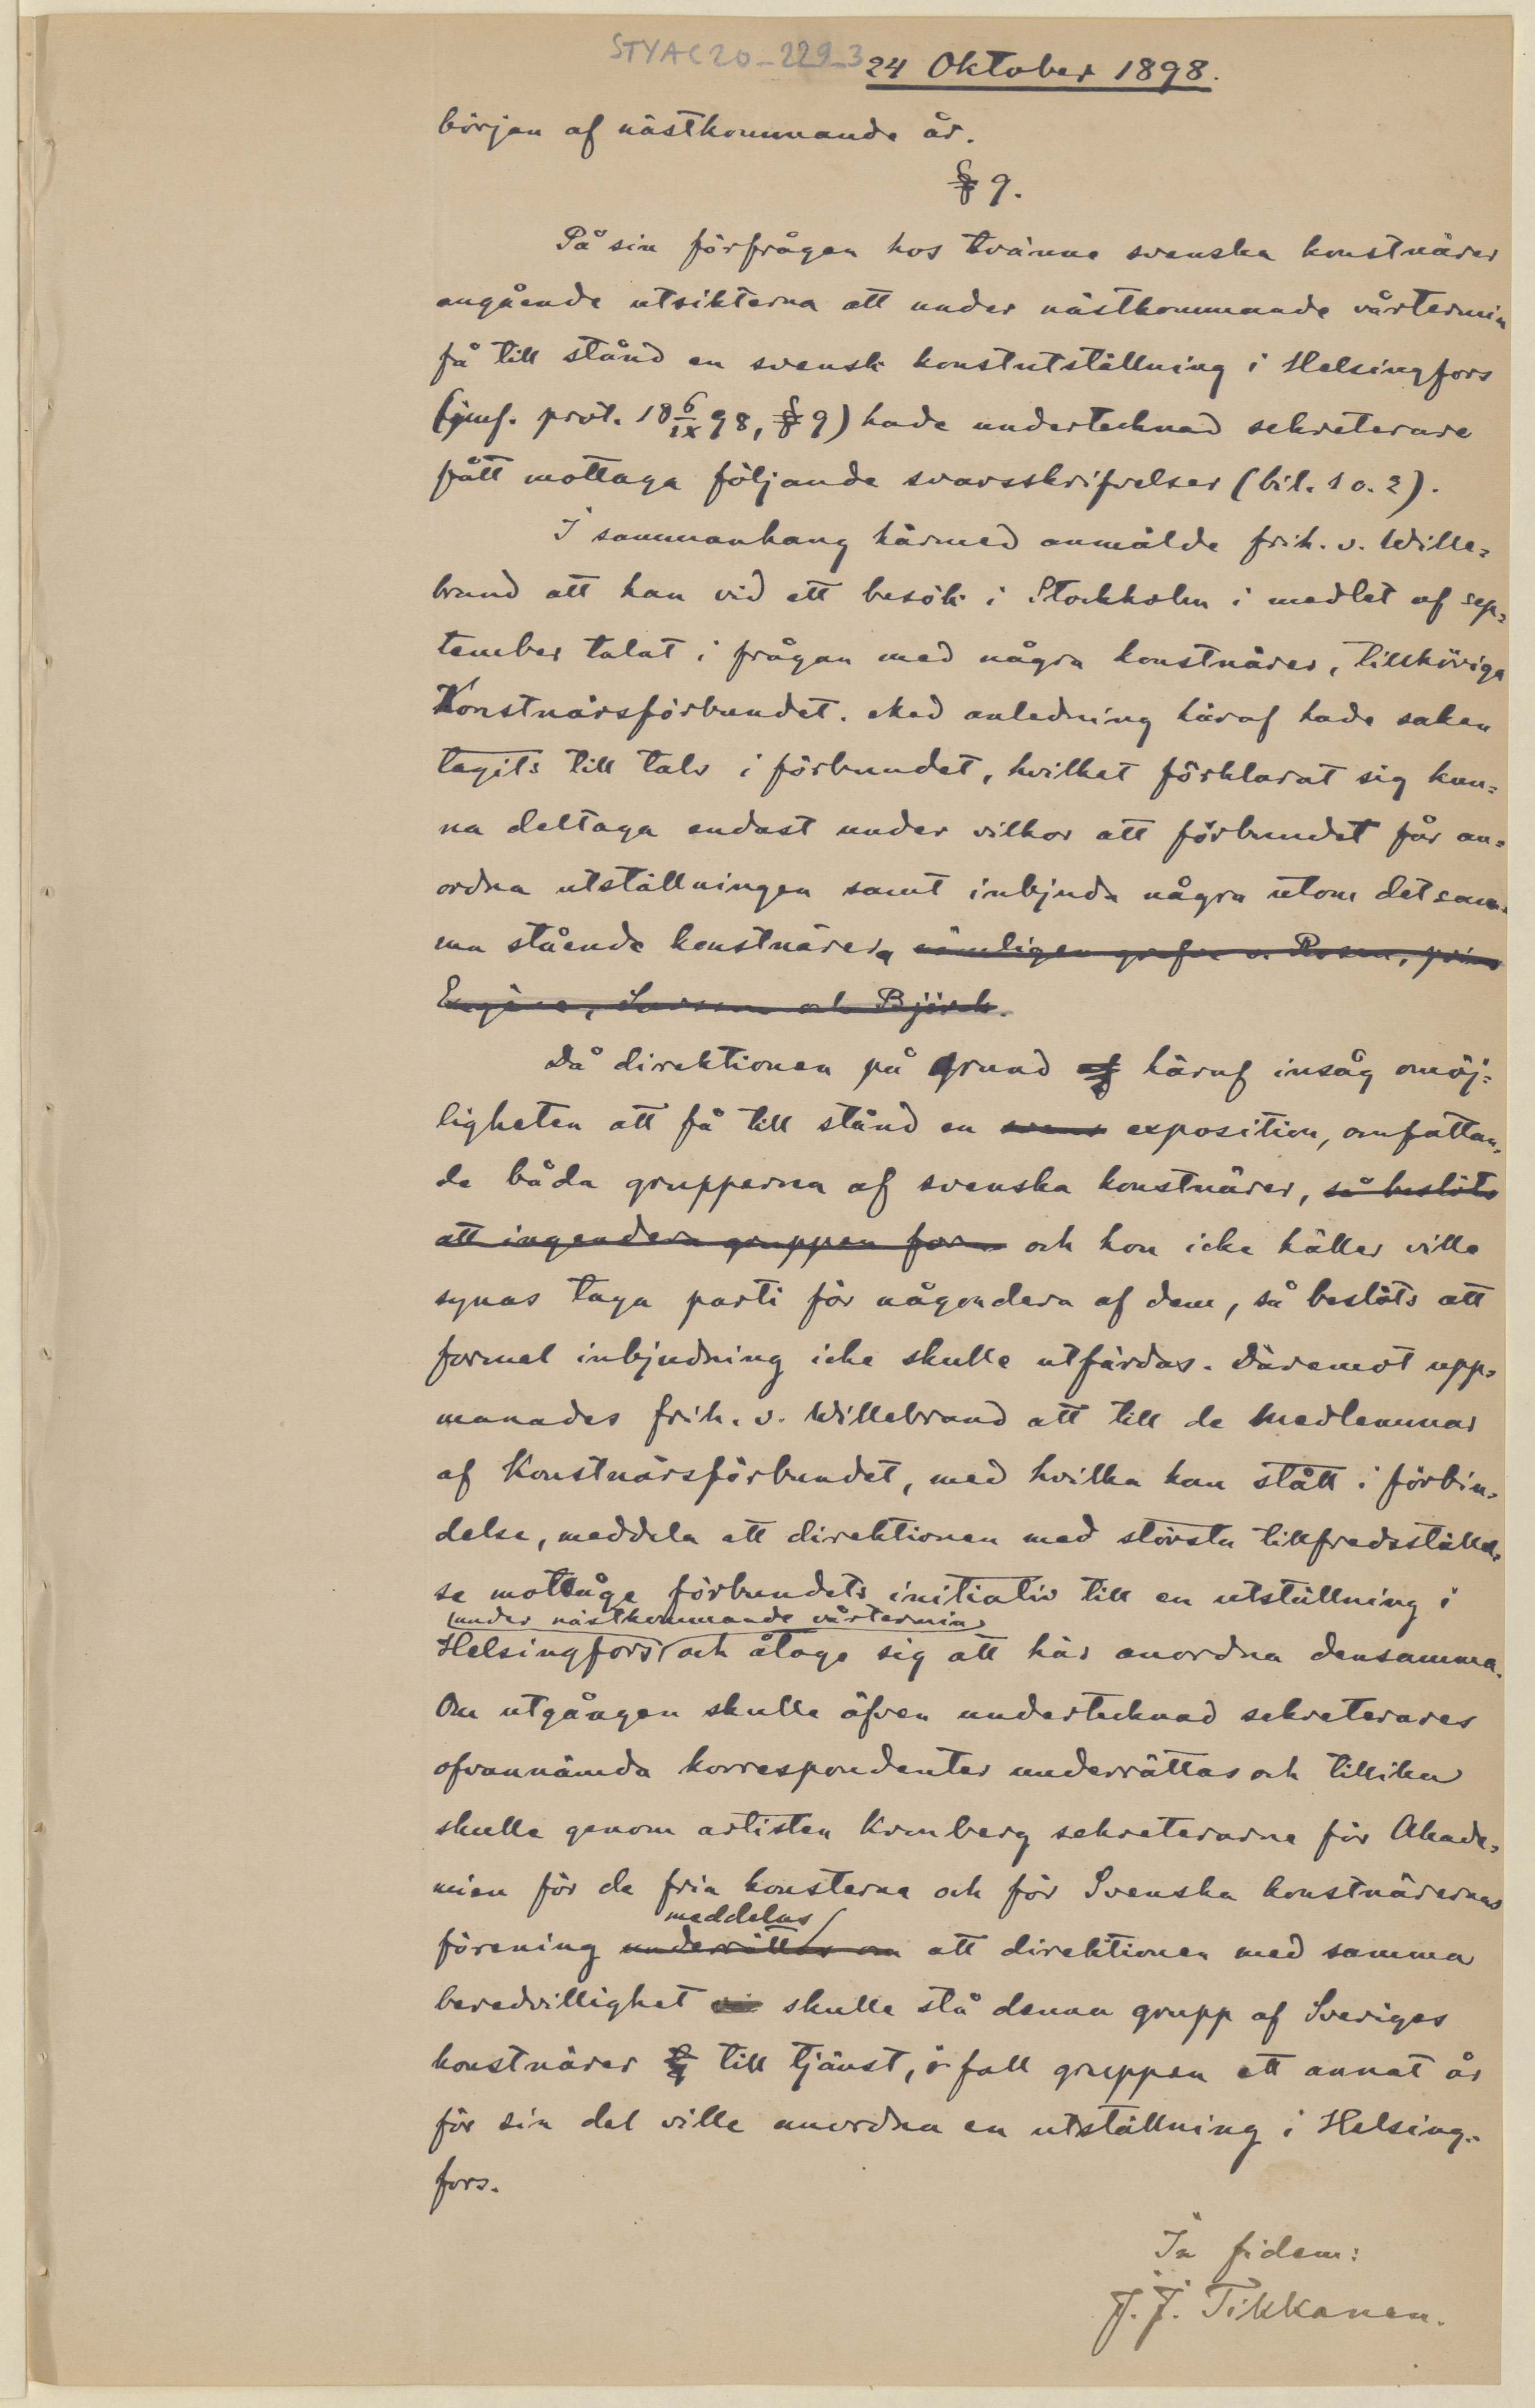 STYAC20_229_3
24 Oktober 1898.
början af nästkommande år.
§ 9.
På sin förfrågan hos tvänne svenska konstnärer
angående utsikterna att under nästkommande vårtermin
få till stånd en svensk konstutställning i Helsingfors
(jmf. prot. 18 6/IX 98, § 9) hade undertecknad sekreterare
fått mottaga följande svarsskrifvelser (bil. 1 o. 2).
I sammanhang härmed anmälde frih. v. Wille=
brand att han vid ett besök i Stockholm i medlet af sep=
tember talat i frågan med några konstnärer, tillhöriga
Konstnärsförbundet. Med anledning häraf hade saken
tagits till tals i förbundet, hvilket förklarat sig kun=
na deltaga endast under vilkor att förbundet får an=
ordna utställningen samt inbjuda några utom detsam=
ma stående konstnärer, nämligen grefve v. Rosen, prins
Eugène, Larsson och Björck.
Då direktionen på grund af häraf insåg omöj=
ligheten att få till stånd en svens exposition, omfattan=
de båda grupperna af svenska konstnärer, så beslöts
att ingendera gruppen for och hon icke häller ville
synas taga parti för någondera af dem, så beslöts att
formel inbjudning icke skulle utfärdas. Däremot upp=
manades frih. v. Willebrand att till de medlemmar
af Konstnärsförbundet, med hvilka han stått i förbin=
delse, meddela att direktionen med största tillfredsställel=
se mottoge förbundets initiativ till en utställning i
under nästkommande vårtermin
Helsingfors och åtoge sig att här anordna densamma.
Om utgången skulle äfven undertecknad sekreterares
ofvannämda korrespondenter underrättas och tillika
skulle genom artisten Kronberg sekreterarne för Akade=
mien för de fria konsterna och för Svenska konstnärernas
meddelas
förening underrättas om att direktionen med samma
beredvillighet vi skulle stå denna grupp af Sveriges
konstnärer till tjänst, i fall gruppen ett annat år
för sin del ville anordna en utställning i Helsing=
fors.
In fidem:
J. J. Tikkanen.